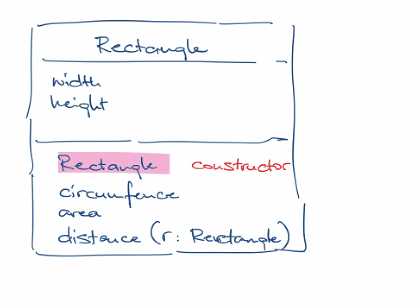 Rectangle
width
height
Rectangle constructor
circumfence
area
distance (r: Rectangle)